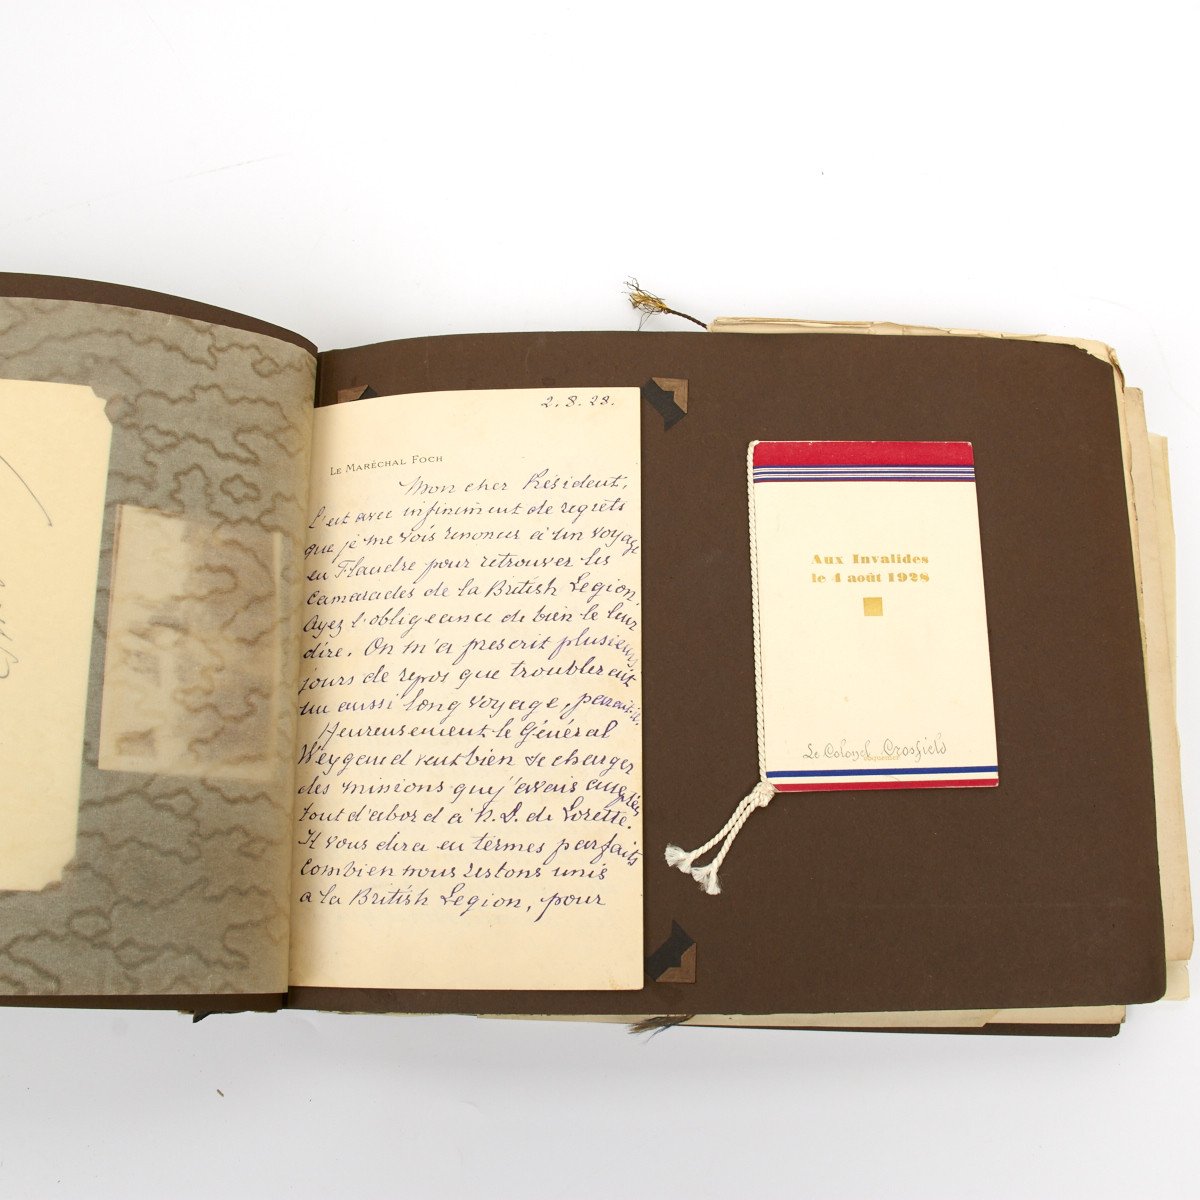 2.8.28.
LE MARÉCHAL FOCH
Mon cher Président,
C'est avec infiniment de regrets
que je me vois renoncer à un voyage
en Flandre pour retrouver les
camarades de la British Legion.
Ayez l'obligeance de bien le leur
dire. On m'a prescrit plusieurs
jours de repos que troublerait
un aussi long voyage, paraît-il.
Heureusement le Général
Weygand veut bien se charger
des missions que j'avais acceptées
tout d'abord à N. D. de Lorette.
Il vous dira en termes parfaits
combien nous restons unis
a la British Legion, pour
Aux Invalides
le 4 août 1928
Le Colonel Crosfield